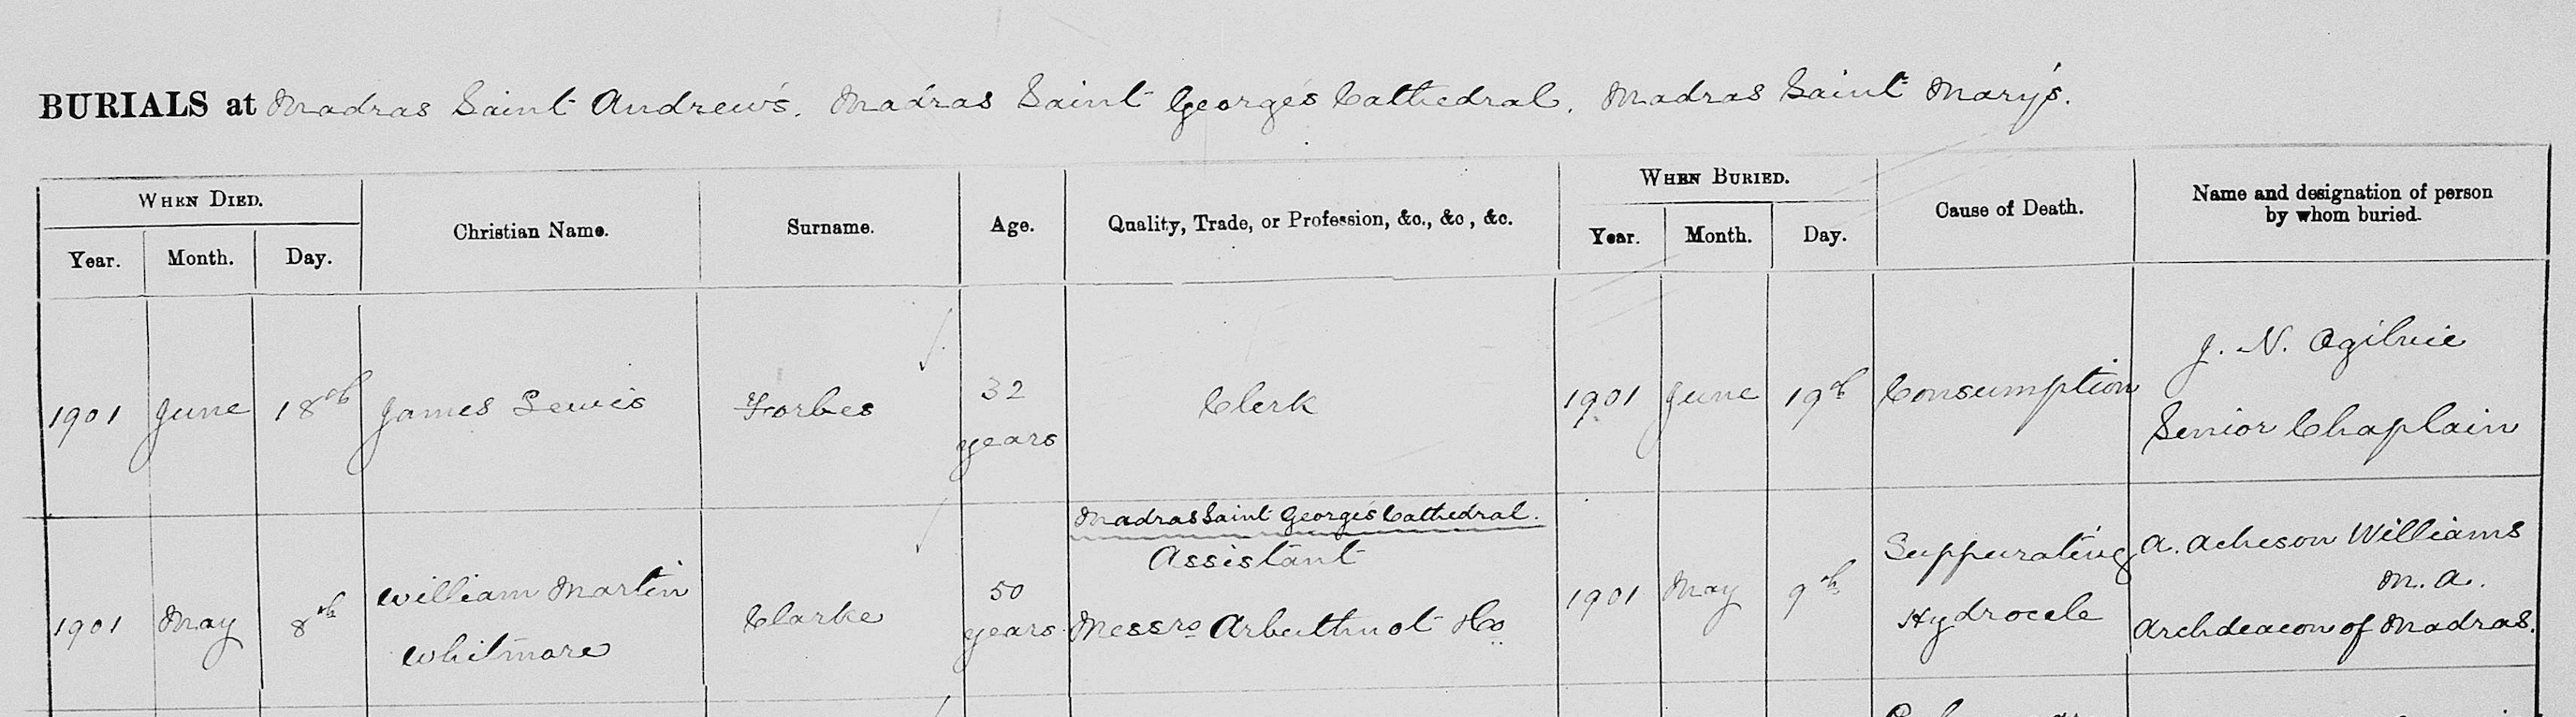 BURIALS at Madras Saint Andrew's. Madras Saint George's Cathedral. Madras Saint Mary's.
WHEN DIED. Christian Name. Surname. Age. Quality, Trade, or Profession, &c., &c, &c. WHEN BURIED. Cause of Death. Name and designation of person by whom buried.
Year. Month. Day. Year. Month. Day.
1901 June 18th James Lewis Forbes 32 years Clerk 1901 June 19th Consumption J. N. Ogilvie
Senior Chaplain
Madras Saint George's Cathedral.
1901 May 8th William Martin Whitmore Clarke 50 years Assistant
Messrs Arbuthnot & Co 1901 May 9th Suppurating
Hydrocele A. Acheson Williams
M. A.
Archdeacon of Madras.